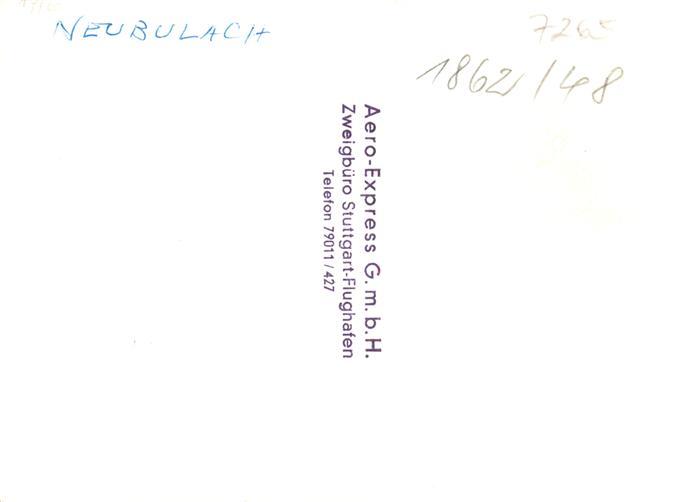 NEUBULACH
1862/48
Aero-Express G.m.b.H.
Zweigbüro Stuttgart-Flughafen
Telefon 79011/427